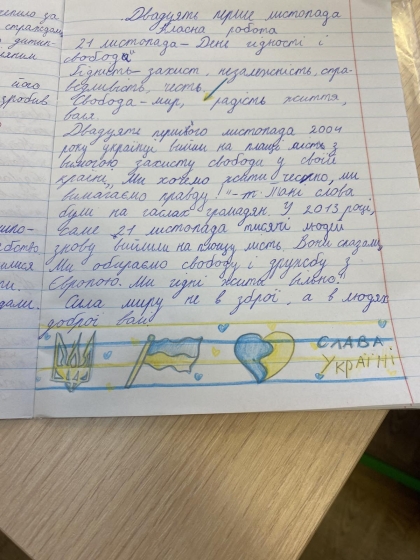 Двадцять перше листопада
Класна робота
21 листопада – День гідності і
свободи
Гідність – захист, незалежність, спра-
ведливість, честь.
Свобода – мир, радість життя,
воля.
Двадцять першого листопада 2004
року українці вийшли на площі міста з
вимогою захисту свободи у своїй
країні. „Ми хочемо жити чесно, ми
вимагаємо правду!" – Такі слова
були на гаслах громадян. У 2013 році,
саме 21 листопада тисячі людей
знову вийшли на площу міста. Вони сказали,
Ми обираємо свободу і дружбу з
Європою. Ми гідні жити вільно!
Сила миру не в зброї, а в людях
доброї волі
СЛАВА
УКРАЇНІ